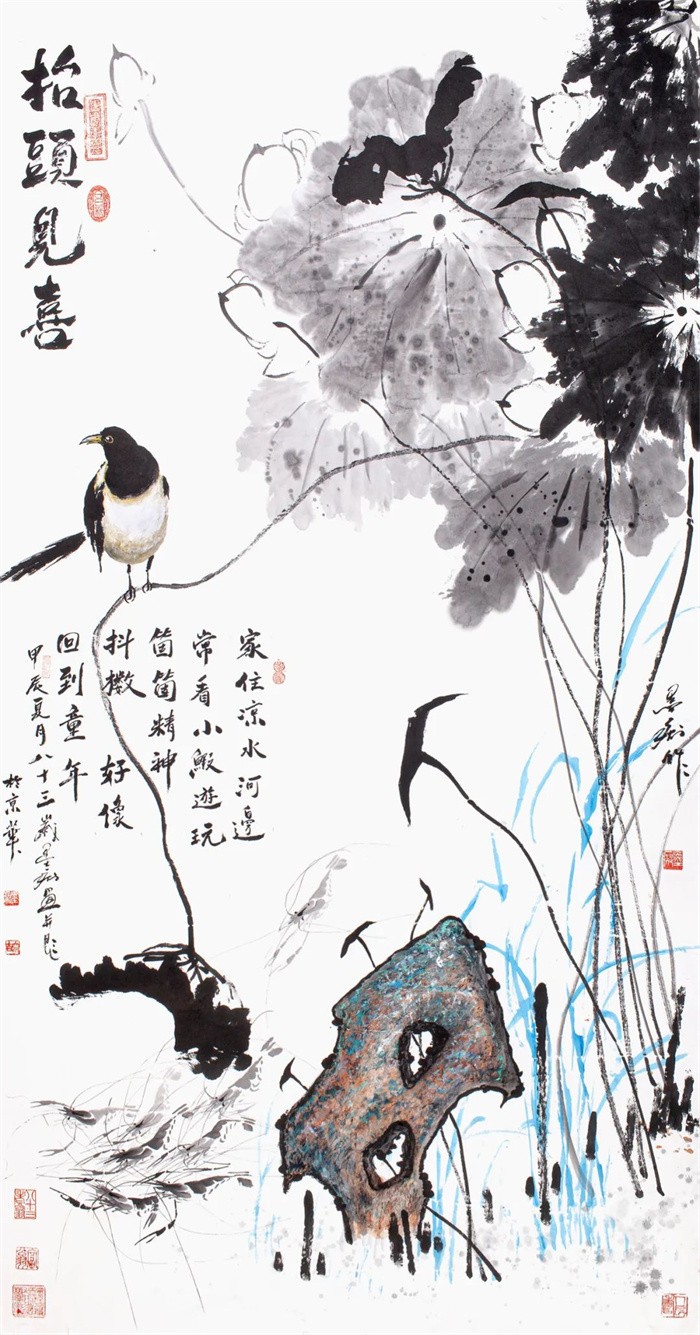 抬頭見喜
家住凉水河邊
常看小鰕遊玩
箇箇精神
抖擻 好像
回到童年
甲辰夏月八十三歲墨痴畫并題
於京華
墨痴作